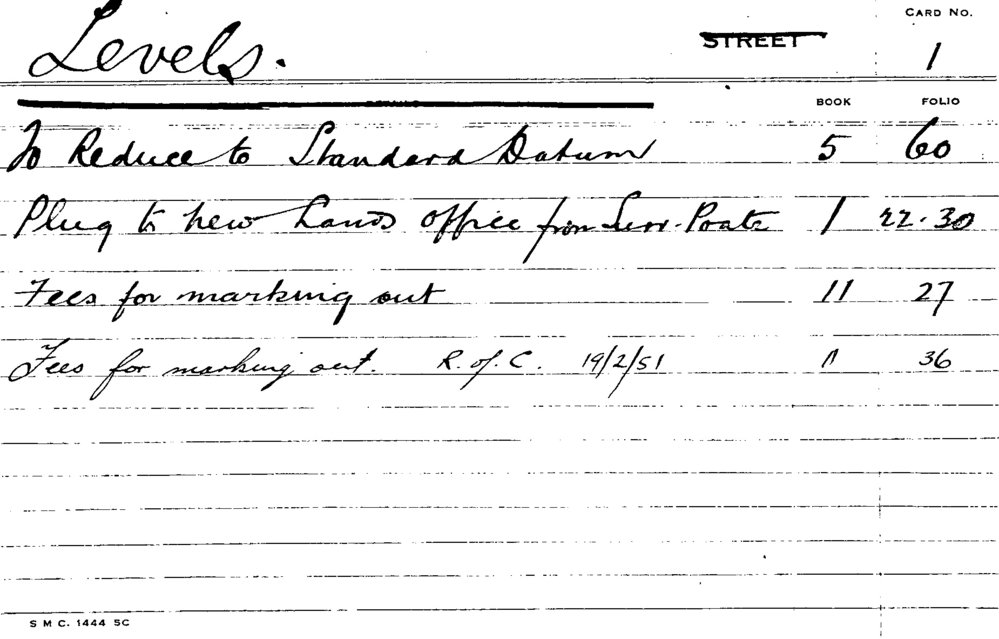 Levels. STREET CARD NO. 1
BOOK FOLIO
To Reduce to Standard Datum 5 60
Plug to new Lands office from Surv. 1 22.30
Fees for marking out 11 27
Fees for marking out. R. of C. 19/2/51 11 36
S M C. 1444 5C